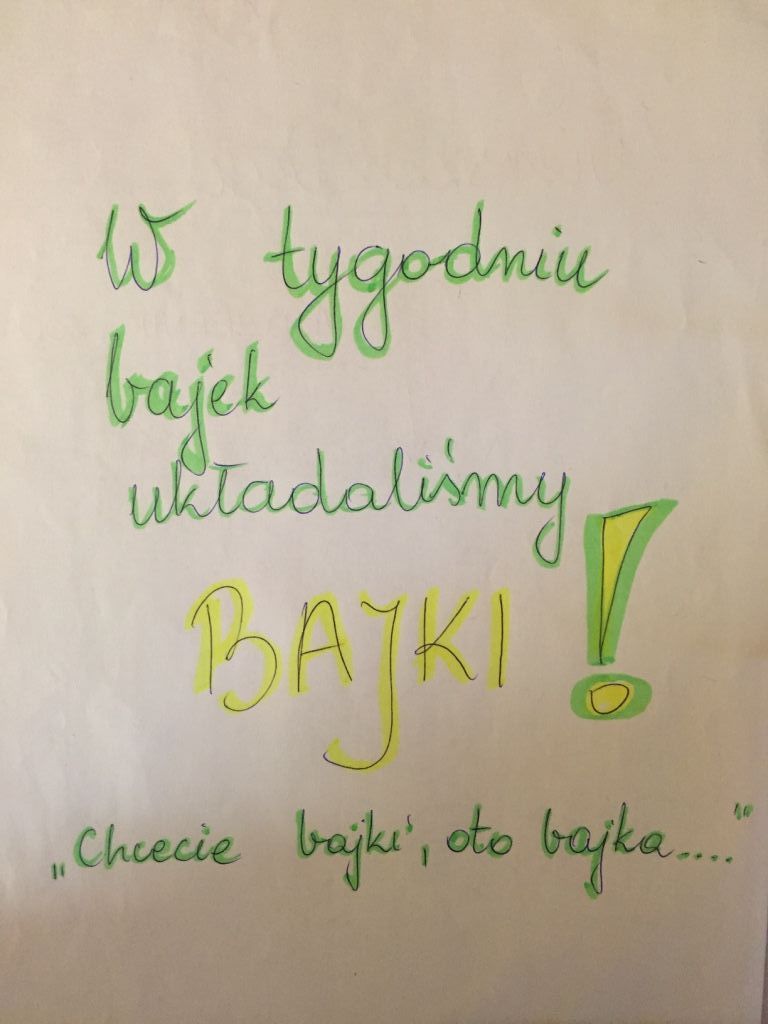 W tygodniu
bajek
układaliśmy
BAJKI!
„Chcecie bajki, oto bajka...."